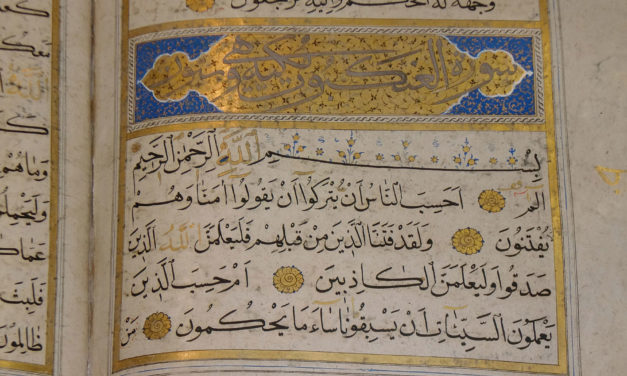 وجهه له الحكم واليه ترجعون
سورة العنكبوت مكية وهي
بِسْمِ اللَّهِ الرَّحْمٰنِ الرَّحِيمِ
الم اَحَسِبَ النَّاسُ اَنْ يُتْرَكُوا اَنْ يَقُولُوا اٰمَنَّا وَهُمْ
يُفْتَنُونَ وَلَقَدْ فَتَنَّا الَّذِينَ مِنْ قَبْلِهِمْ فَلَيَعْلَمَنَّ اللَّهُ الَّذِينَ
صَدَقُوا وَلَيَعْلَمَنَّ الْكَاذِبِينَ اَمْ حَسِبَ الَّذِينَ
يَعْمَلُونَ السَّيِّئَاتِ اَنْ يَسْبِقُونَا سَاءَ مَا يَحْكُمُونَ مَنْ
مَعَكُمْ
وَمَاهُمْ
وَلَيَحْمِلُنَّ
فَلَبِثَ
ظَالِمُونَ